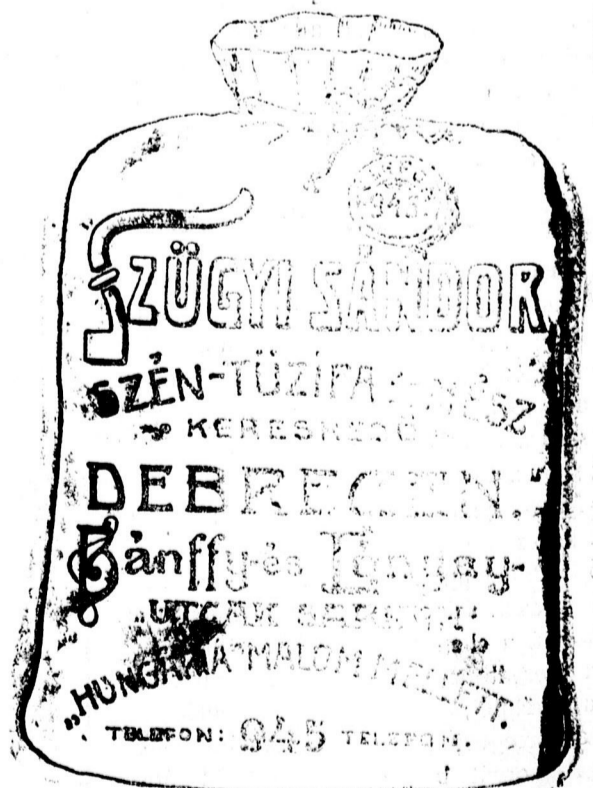 945.
SZÜGYI SÁNDOR
SZÉN-TŰZÍFA MÉSZ
KERESKEDŐ
DEBRECEN.
Bánffy-és Lónyay-
UTCÁK SARKÁN
„HUNGÁRIA" MALOM MELLETT.
TELEFON: 945 TELEFON.